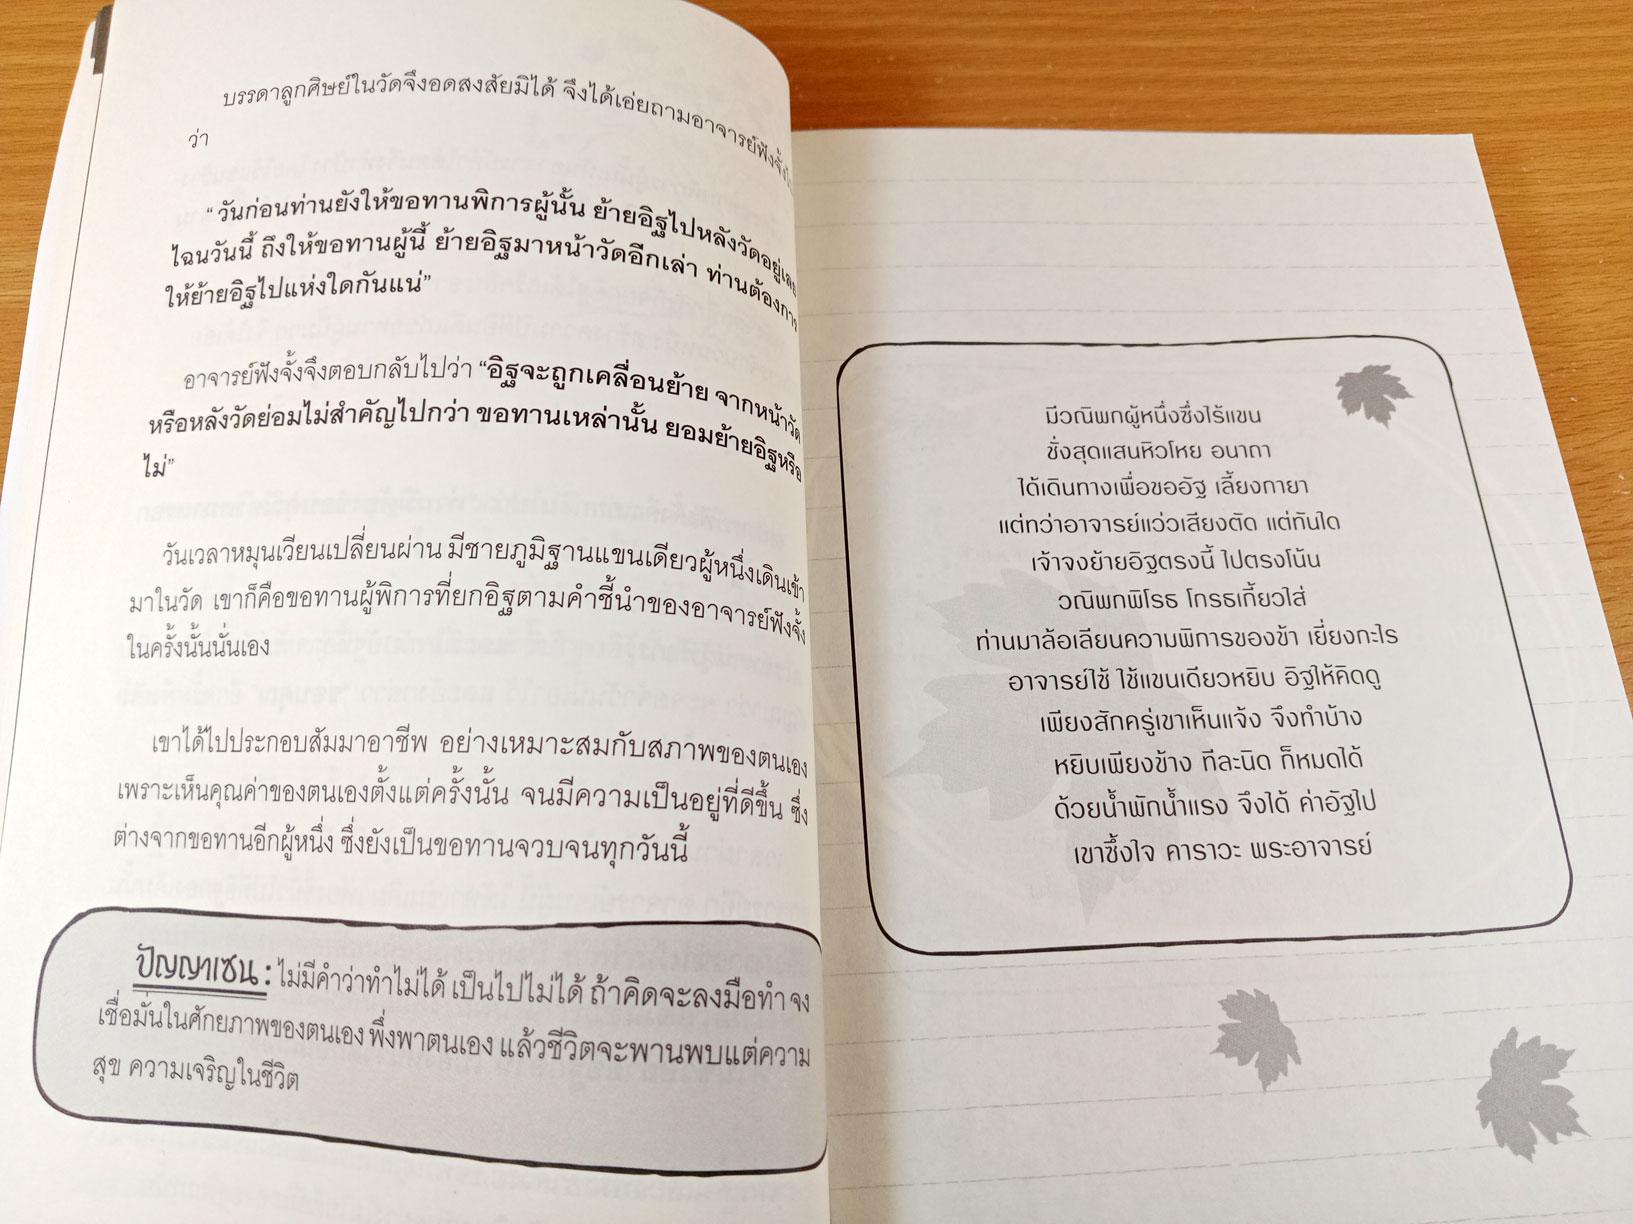 บรรดาลูกศิษย์ในวัดจึงอดสงสัยมิได้ จึงได้เอ่ยถามอาจารย์ฟังจั้ง
ว่า
“วันก่อนท่านยังให้ขอทานพิการผู้นั้น ย้ายอิฐไปหลังวัดอยู่เลย
ไฉนวันนี้ ถึงให้ขอทานผู้นี้ ย้ายอิฐมาหน้าวัดอีกเล่า ท่านต้องการ
ให้ย้ายอิฐไปแห่งใดกันแน่”
อาจารย์ฟังจั้งจึงตอบกลับไปว่า “อิฐจะถูกเคลื่อนย้าย จากหน้าวัด
หรือหลังวัดย่อมไม่สำคัญไปกว่า ขอทานเหล่านั้น ยอมย้ายอิฐหรือ
ไม่”
วันเวลาหมุนเวียนเปลี่ยนผ่าน มีชายภูมิฐานแขนเดียวผู้หนึ่งเดินเข้า
มาในวัด เขาก็คือขอทานผู้พิการที่ยกอิฐตามคำชี้นำของอาจารย์ฟังจั้ง
ในครั้งนั้นนั่นเอง
เขาได้ไปประกอบสัมมาอาชีพ อย่างเหมาะสมกับสภาพของตนเอง
เพราะเห็นคุณค่าของตนเองตั้งแต่ครั้งนั้น จนมีความเป็นอยู่ที่ดีขึ้น ซึ่ง
ต่างจากขอทานอีกผู้หนึ่ง ซึ่งยังเป็นขอทานจวบจนทุกวันนี้
ปัญญาเซน : ไม่มีคำว่าทำไม่ได้ เป็นไปไม่ได้ ถ้าคิดจะลงมือทำ จง
เชื่อมั่นในศักยภาพของตนเอง พึ่งพาตนเอง แล้วชีวิตจะพานพบแต่ความ
สุข ความเจริญในชีวิต
มีวณิพกผู้หนึ่งซึ่งไร้แขน
ชั่งสุดแสนหิวโหย อนาถา
ได้เดินทางเพื่อขออัฐ เลี้ยงกายา
แต่ทว่าอาจารย์แว่วเสียงตัด แต่ทันใด
เจ้าจงย้ายอิฐตรงนี้ ไปตรงโน้น
วณิพกพิโรธ โกรธเกี้ยวใส่
ท่านมาล้อเลียนความพิการของข้า เยี่ยงกะไร
อาจารย์ใช้ ใช้แขนเดียวหยิบ อิฐให้คิดดู
เพียงสักครู่เขาเห็นแจ้ง จึงทำบ้าง
หยิบเพียงข้าง ทีละนิด ก็หมดได้
ด้วยน้ำพักน้ำแรง จึงได้ ค่าอัฐไป
เขาซึ้งใจ คาราวะ พระอาจารย์